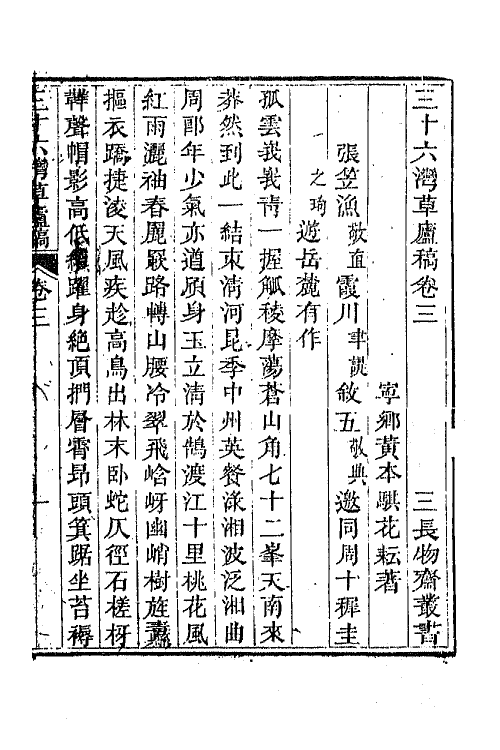 三十六灣草廬稿卷三　三長物齋叢書
寧鄉黃本騏花耘著
張笠漁敬直霞川聿謨敘五敬典邀同周十穉圭
之琦遊岳麓有作
孤雲峩峩靑一握觚稜摩蕩蒼山角七十二峯天南來
莽然到此一結束淸河昆季中州英餐淥湘波泛湘曲
周郎年少氣亦道頎身玉立淸於鵠渡江十里桃花風
紅雨灑袖春麗𪩘路轉山腰冷翠飛峆岈幽峭樹旌纛
摳衣蹻捷淩天風疾趁高鳥出林末臥蛇仄徑石槎枒
韡聲帽影高低身絕頂捫層霄昻頭箕踞坐苔褥
三十六灣草廬稿　卷三